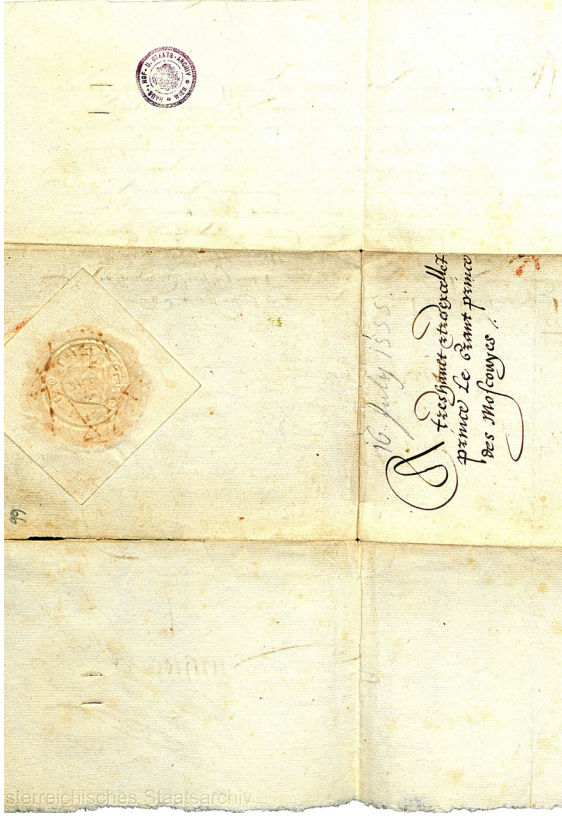 HAUS-, HOF- U. STAATS-ARCHIV * WIEN *
16. July 1555.
A treshault et tresexcellēt
prince Le Grant prince
des Moscouyes /.
66
sterreichisches Staatsarchiv